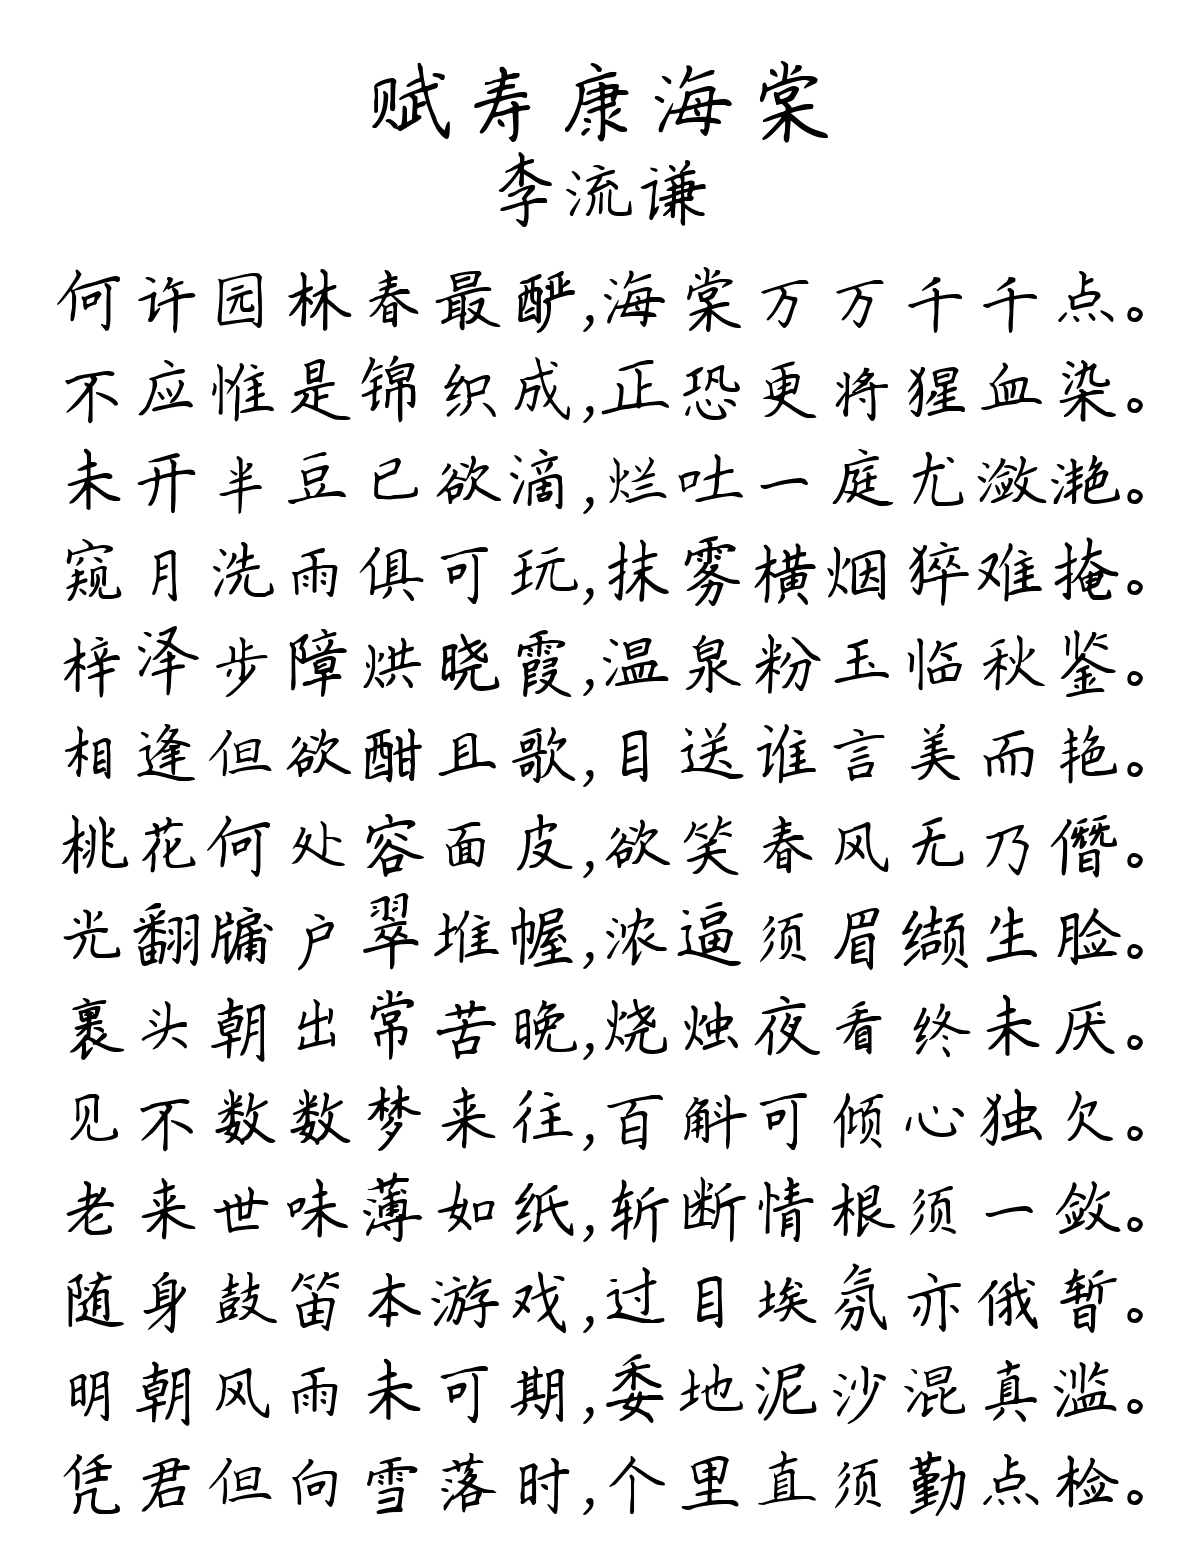 赋寿康海棠
李流谦
何许园林春最酽,海棠万万千千点。
不应惟是锦织成,正恐更将猩血染。
未开半豆已欲滴,烂吐一庭尤潋滟。
窥月洗雨俱可玩,抹雾横烟猝难掩。
梓泽步障烘晓霞,温泉粉玉临秋鉴。
相逢但欲酣且歌,目送谁言美而艳。
桃花何处容面皮,欲笑春风无乃僭。
光翻牖户翠堆幄,浓逼须眉缬生脸。
裹头朝出常苦晚,烧烛夜看终未厌。
见不数数梦来往,百斛可倾心独欠。
老来世味薄如纸,斩断情根须一敛。
随身鼓笛本游戏,过目埃氛亦俄暂。
明朝风雨未可期,委地泥沙混真滥。
凭君但向雪落时,个里直须勤点检。